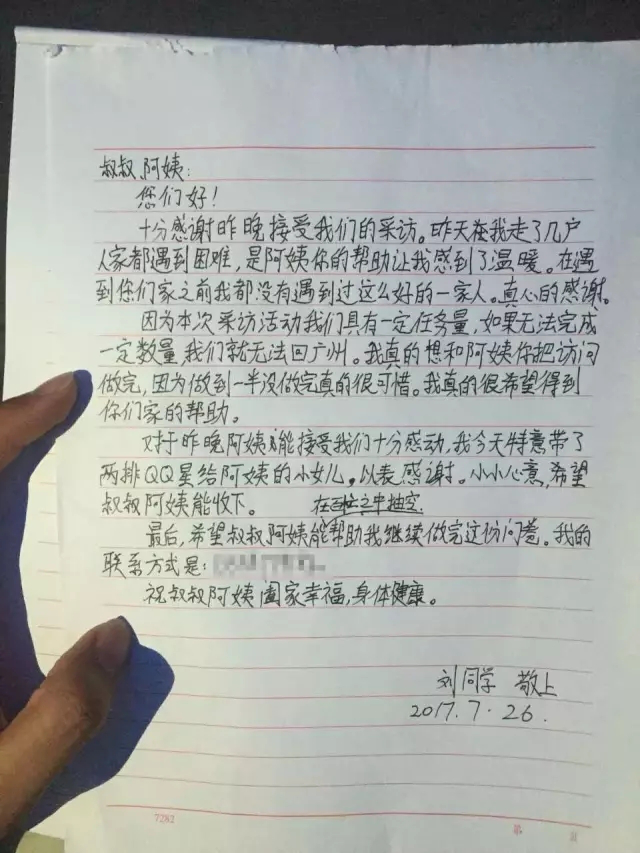 叔叔、阿姨:
您们好!
十分感谢昨晚接受我们的采访。昨天在我走了几户
人家都遇到困难,是阿姨你的帮助让我感到了温暖。在遇
到你们家之前我都没有遇到过这么好的一家人。真心的感谢。
因为本次采访活动我们具有一定任务量,如果无法完成
一定数量,我们就无法回广州。我真的想和阿姨你把访问
做完,因为做到一半没做完真的很可惜。我真的很希望得到
你们家的帮助。
对于昨晚阿姨能接受我们十分感动,我今天特意带了
两排QQ星给阿姨的小女儿,以表感谢。小小心意,希望
叔叔阿姨能收下。
在百忙之中抽空
最后,希望叔叔阿姨能帮助我继续做完这份问卷。我的
联系方式是:
祝叔叔阿姨阖家幸福,身体健康。
刘同学 敬上
2017.7.26.
7282
第 页